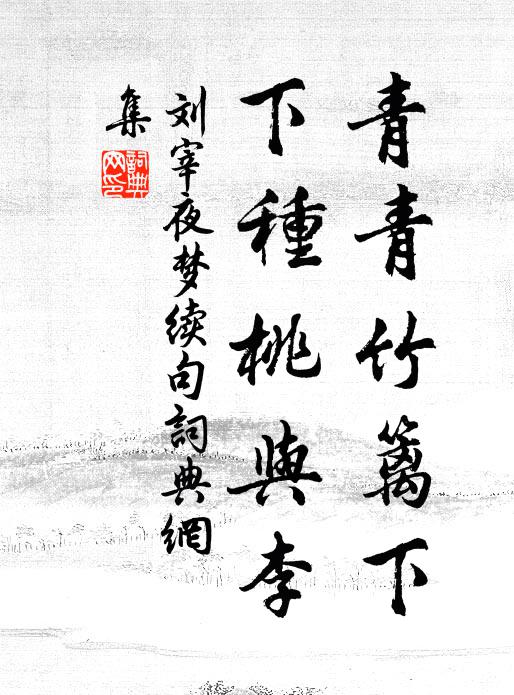 青青竹籬下
下種桃與李
刘宰夜梦续句詞典網
集
詞典
网印